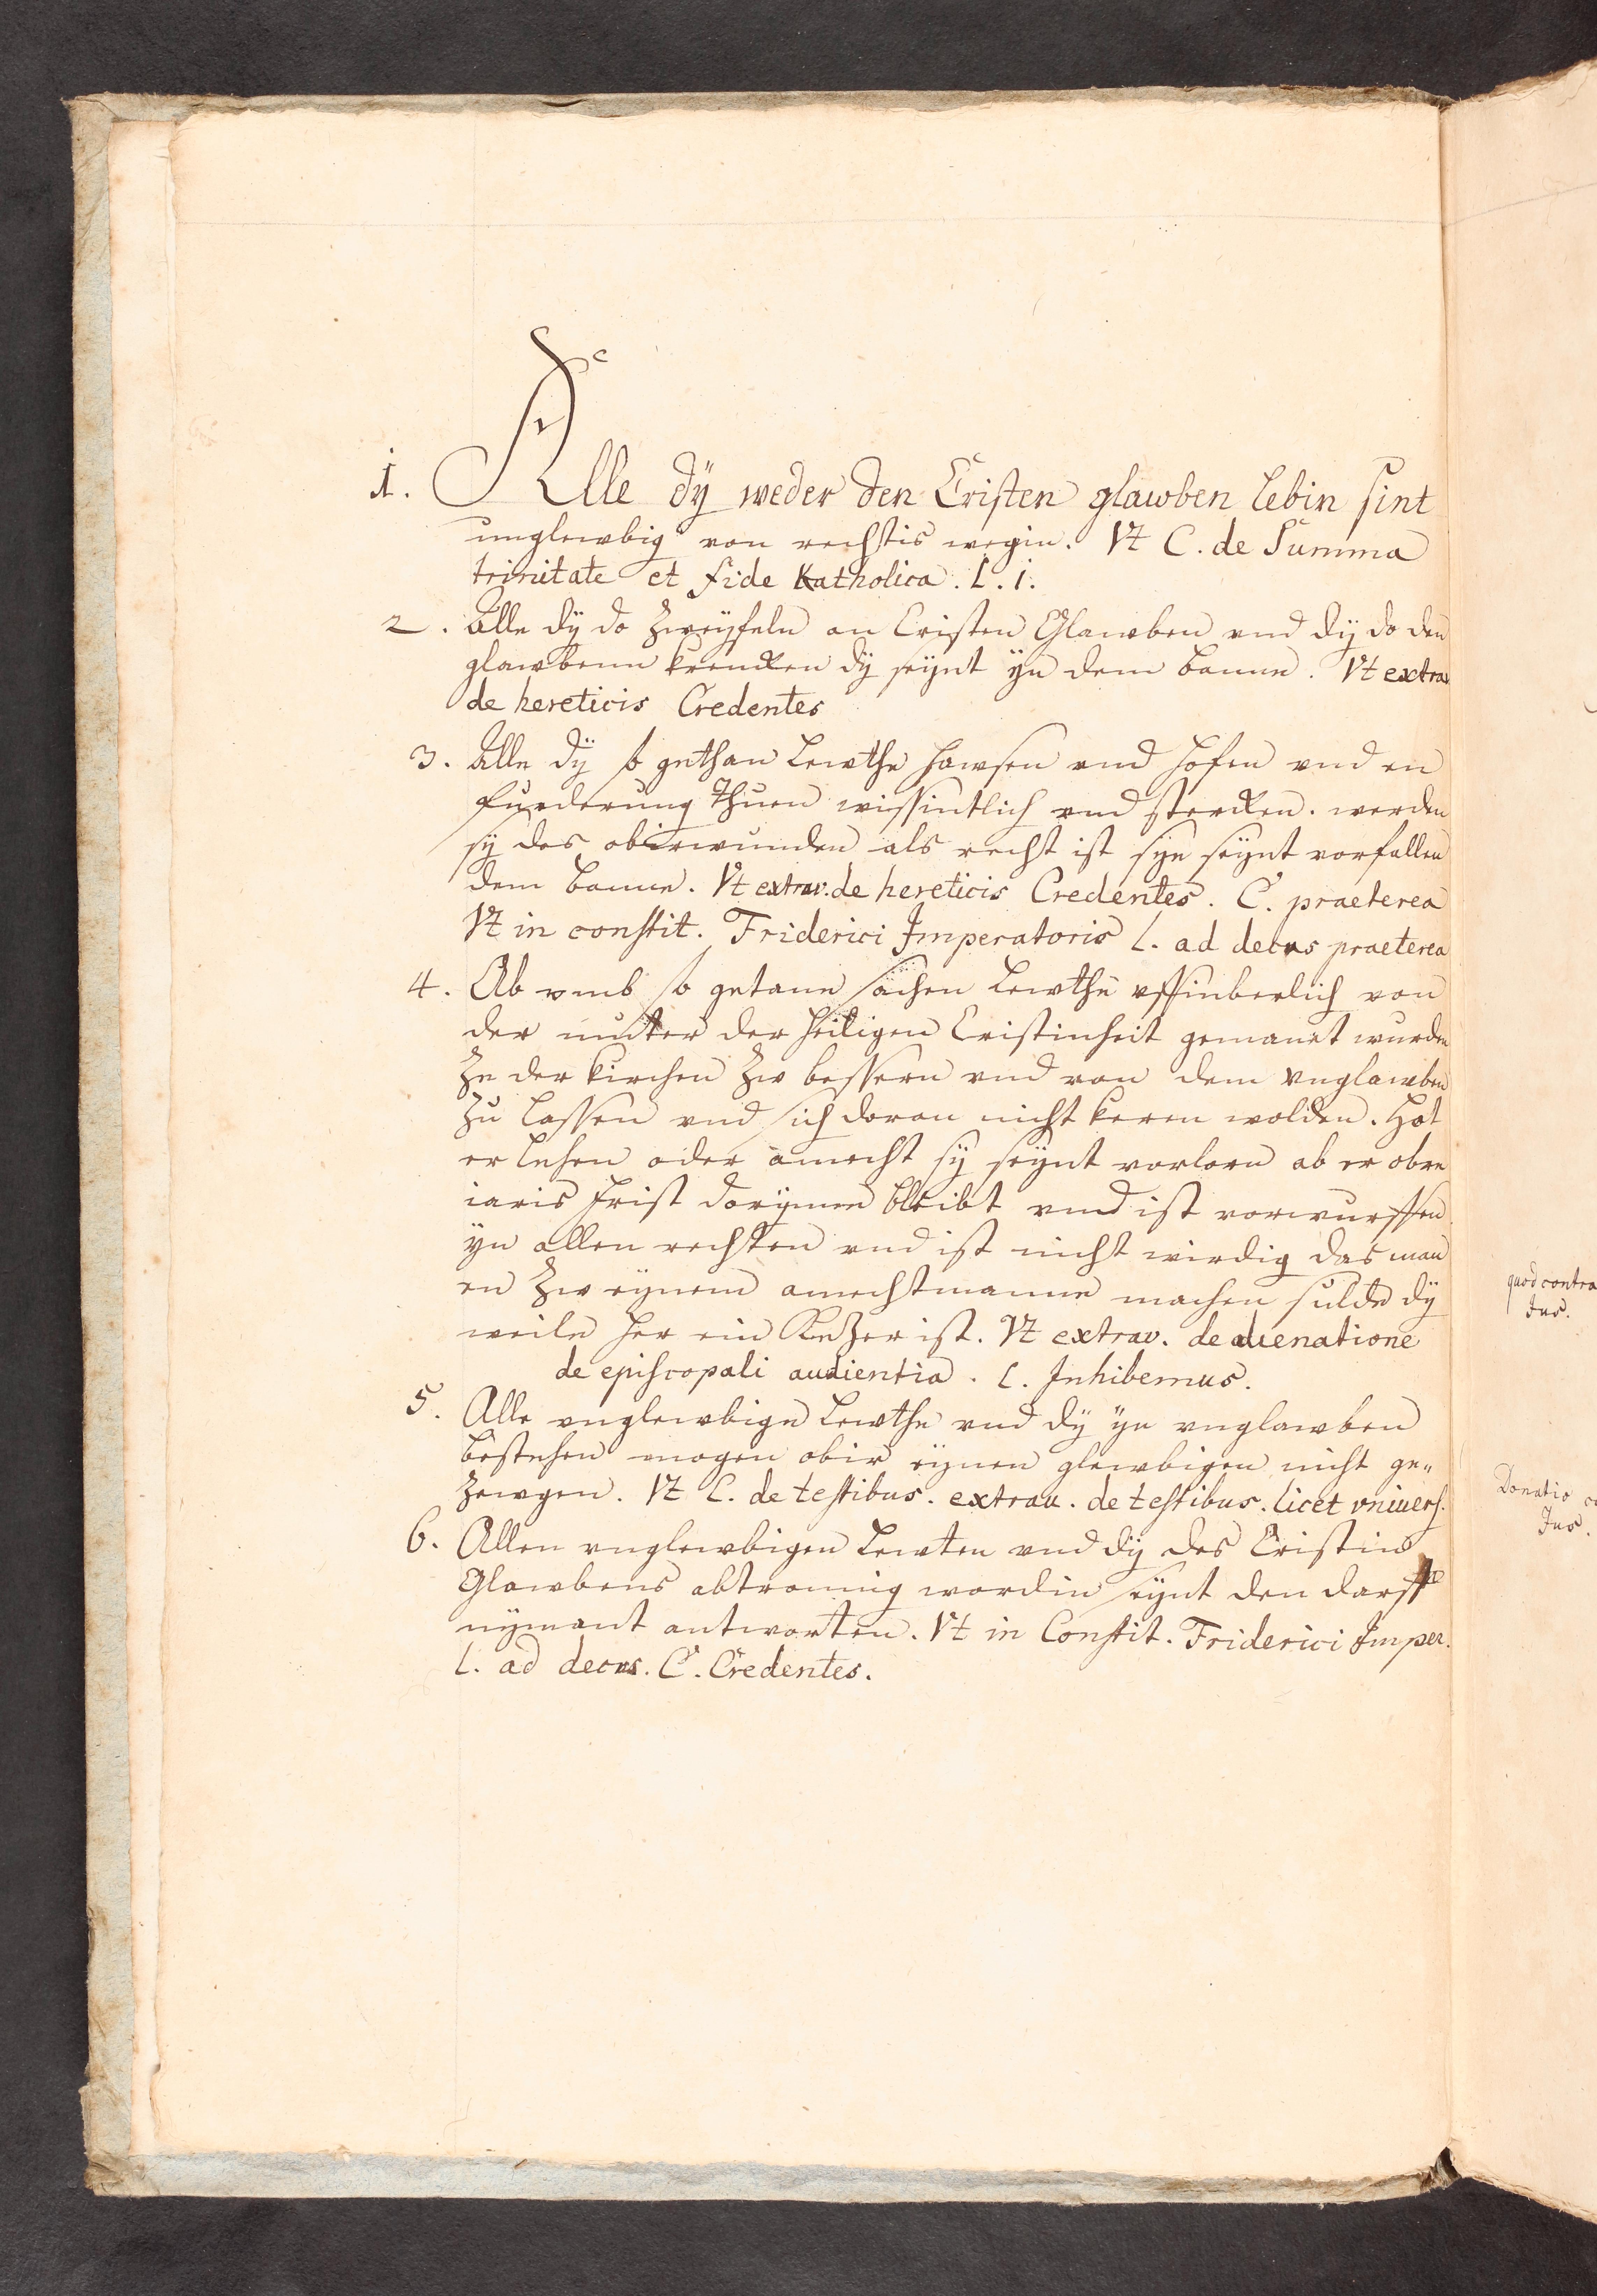 1. Alle dÿ weder den Cristen glawben lebin sint
unglewbig von rechtis wegin. Vt C. de Summa
trinitate et fide Katholica. L. i.
2. Alle dÿ do zweyfeln an Cristen Glawben vnd dÿ do den
glawbenn krencken dÿ seynt ÿn dem banne. Vt extrav
de hereticis Credentes
3. Alle dÿ so gethan Lewthe hawsen vnd hofen vnd en
furderung thuen wissintlich vnd stercken. werden
sÿ des obirwunden als recht ist syn seynt vorfallen
dem banne. Vt extrav. de hereticis Credentes. C. praeterea
Vt in constit. Friderici Imperatoris L. ad decus praeterea
4. Ab vmb so getane sachen Lewthe uffinberlich von
der mutter der heiligen Cristinheit gemanet wurden
Zu der kirchen Zw bessern vnd von dem vnglawben
Zu lassen vnd sich doran nicht keren wolden. Hat
er lehen oder amecht sÿ seynt vorlorn ab er obre
iaris frist dorÿnnen bleibt vnd ist vorwurffen
ÿn allen rechten vnd ist nicht wirdig das man
en Zw eynem amechtmanne machen sulde dÿ
weile her ein Ketzer ist. Vt extrav. de alienatione
de episcopali audientia. C. Inhibemus.
5. Alle vnglewbige Lewthe vnd dÿ ÿn vnglawben
bestehen mogen obir eynen glewbigen nicht ge„
Zewgen. Vt C. de testibus. extrav. de testibus. licet vniuers.
6. Allen vnglewbigen Lewten vnd dÿ des Cristin
Glawbens abtronnig wordin seynt den darff
nymant antworten. Vt in Constit. Friderici Imper.
L. ad decus. C. Credentes.
quod contra
Jus.
Donatio
Jus.